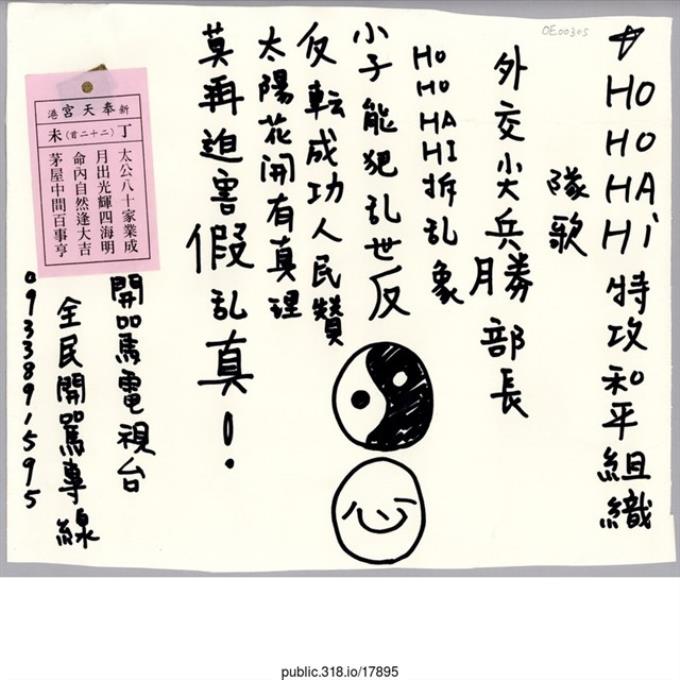 OE00305
HO HO HAI HI 特攻和平組織
隊歌
外交小大兵勝部長
HO HO HA HI 拆乱象
小子能犯乱世反
反転成功人民贊
太陽花開有真理
莫再迫害假乱真!
新奉天宮港
丁(二十二首)未
太公八十家業成
月出光輝四海明
命內自然逢大吉
茅屋中間百事亨
開罵電視台
全民開罵專線
0933891595
public.318.io/17895